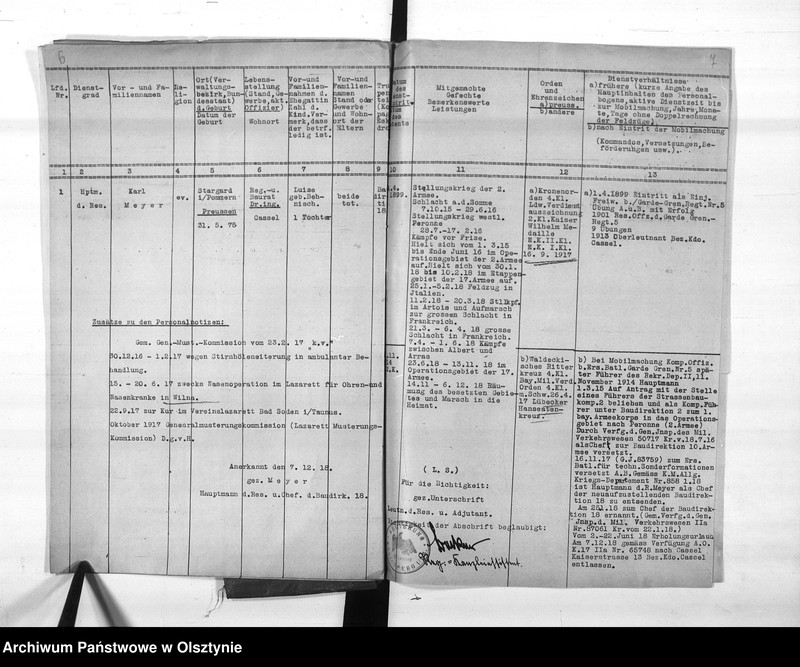 6
Lfd.
Nr.
Dienst-
grad
Vor - und Fa-
miliennamen
Re-
li-
gion
Ort(Ver-
waltungs-
bezirk,Bun-
desstaat)
d.Geburt
Datum der
Geburt
Lebens-
stellung
(Stand,Ge-
werbe,akt.
Offizier)
Wohnort
Vor-und
Familien-
nahmen d.
Ehegattin
Zahl d.
Kind.Ver-
merk,dass
der betrf.
ledig ist.
Vor-und
Familien-
namen
Stand oder
Gewerbe
und Wohn-
ort der
Eltern
1 2 3 4 5 6 7 8 9
1
Hptm.
d. Res.
Karl
Meyer
ev.
Stargard
i/Pommern
Preussen
31. 5. 75
Reg.-u.
Baurat
Dr.ing.
Cassel
Luise
geb.Beh-
nisch.
1 Tochter
beide
tot.
Zusätze zu den Personalnotizen:
Gem. Gen.-Must.-Kommission vom 23.2. 17 "k.v."
30.12.16 - 1.2.17 wegen Stirnhöleneiterung in ambulanter Be-
handlung.
15. - 20. 6. 17 zwecks Nasenoperation im Lazarett für Ohren-und
Nasenkranke in Wilna.
22.9.17 zur Kur im Vereinslazarett Bad Soden i/Taunus.
Oktober 1917 Generalmusterungskommission (Lazarett Musterungs-
Kommission) D.g.v.H.
Anerkannt den 7.12. 18.
gez. Meyer
Hauptmann d.Res. u.Chef. d.Baudirk. 18.
7
Mitgemachte
Gefechte
Bemerkenswerte
Leistungen
Orden
und
Ehrenzeichen
a)preuss.
b)andere
Dienstverhältnisse
a)frühere (kurze Angabe des
Hauptinhaltes des Personal-
bogens,aktive Dienstzeit bis
zur Mobilmachung,Jahre,Mona-
te,Tage ohne Doppelrechnung
der Feldzüge).
b)nach Eintritt der Mobilmachung
(Kommandos,Versetzungen,Be-
förderungen usw.).
10 11 12 13
Stellungskrieg der 2.
Armee.
Schlacht a.d.Somme
7.10.15 - 29.6.16
Stellungskrieg westl.
Peronne
28.7.-17. 2.16
Kämpfe vor Frise.
Hielt sich vom 1. 3.15
bis Ende Juni 16 im Ope-
rationsgebiet der 2.Armee
auf.Hielt sich vom 30.1.
18 bis 10.2.18 im Etappen-
gebiet der 17.Armee auf.
25.1.-5.2.18 Feldzug in
Jtalien.
11.2.18 - 20.3.18 Stllkpf.
im Artois und Aufmarsch
zur grossen Schlacht in
Frankreich.
21.3. - 6. 4.18 grosse
Schlacht in Frankreich.
7.4. - 1. 6.18 Kämpfe
zwischen Albert und
Arras
23.6.18 - 13.11. 18 im
Operationsgebiet der 17.
Armee.
14.11 - 6. 12. 18 Räu-
mung des besetzten Gebie-
tes und Marsch in die
Heimat.
a)Kronenor-
den 4.Kl.
Ldw.Verdienst
auszeichnung
2.Kl.Kaiser
Wilhelm Me-
daille
E.K.II.Kl.
E.K. I.Kl.
16. 9. 1917
b)Waldecki-
sches Ritter
kreuz 4.Kl.
Bay.Mil.Verd.
Orden 4.Kl.
m.Schw.26.4.
17 Lübecker
Hanseaten-
kreuz.
a)1.4.1899 Eintritt als Einj.
Freiw. b./Garde-Gren.Regt.Nr.5
Übung A.u.B. mit Erfolg
1901 Res.Offz.d.Garde Gren.-
Regt.5
9 Übungen
1913 Oberleutnant Bez.Kdo.
Cassel.
b) Bei Mobilmachung Komp.Offiz.
b.Ers.Batl.Garde Gren.Nr.5 spä-
ter Führer des Rekr.Dep.II,11.
November 1914 Hauptmann
1.3.15 Auf Antrag mit der Stelle
eines Führers der Strassenbau-
komp.2 beliehen und als Komp.Füh-
rer unter Baudirektion 2 zum 1.
bay.Armeekorps in das Operations-
gebiet nach Peronne (2.Armee)
Durch Verfg.d.Gen.Jnsp.des Mil.
Verkehrswesen 50717 Kr.v.18.7.16
alsChef zur Baudirektion 10.Ar-
mee versetzt.
16.11.17 (G.J.83759) zum Ers.
Batl.für techn.Sonderformationen
versetzt A.B.Gemäss K.M.Allg.
Kriegs-Departement Nr.858 1.18
ist Hauptmann d.R.Meyer als Chef
der neuaufzustellenden Baudirek-
tion 18 zu entsenden.
Am 25.1.18 zum Chef der Baudirek-
tion 18 ernannt.(Gem.Verfg.d.Gen.
Jnsp.d. Mil. Verkehrswesen IIa
Nr.87061 Kr.vom 22.1.18.)
Vom 2.-22.Juni 18 Erholungsurlaub
Am 7.12.18 gemäss Verfügung A.O.
K.17 IIa Nr. 65748 nach Cassel
Kaiserstrasse 13 Bez.Kdo.Cassel
entlassen.
( L. S.)
Für die Richtigkeit:
gez.Unterschrift
Leutn.d.Res. u. Adjutant.
der Abschrift beglaubigt:
Archiwum Państwowe w Olsztynie